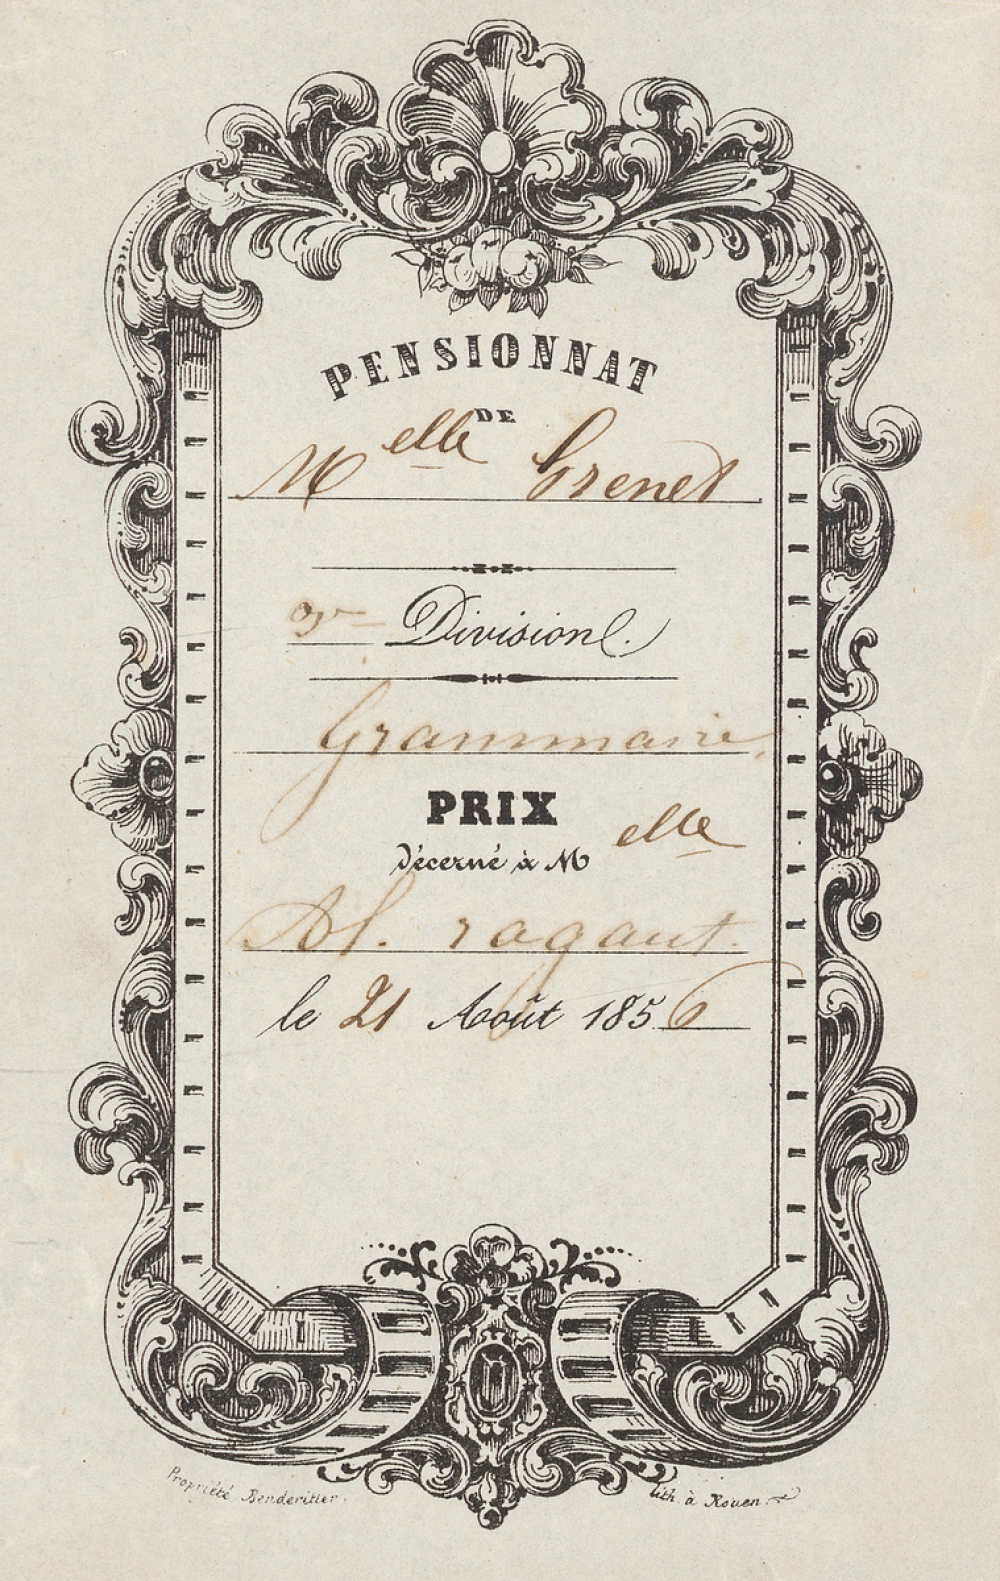 PENSIONNAT
DE
Melle Grenet
Division.
Grammaire
PRIX
décerné à Melle
Al. ragaut.
le 21 Août 1856
Propriété Benderitter.
lith. à Rouen